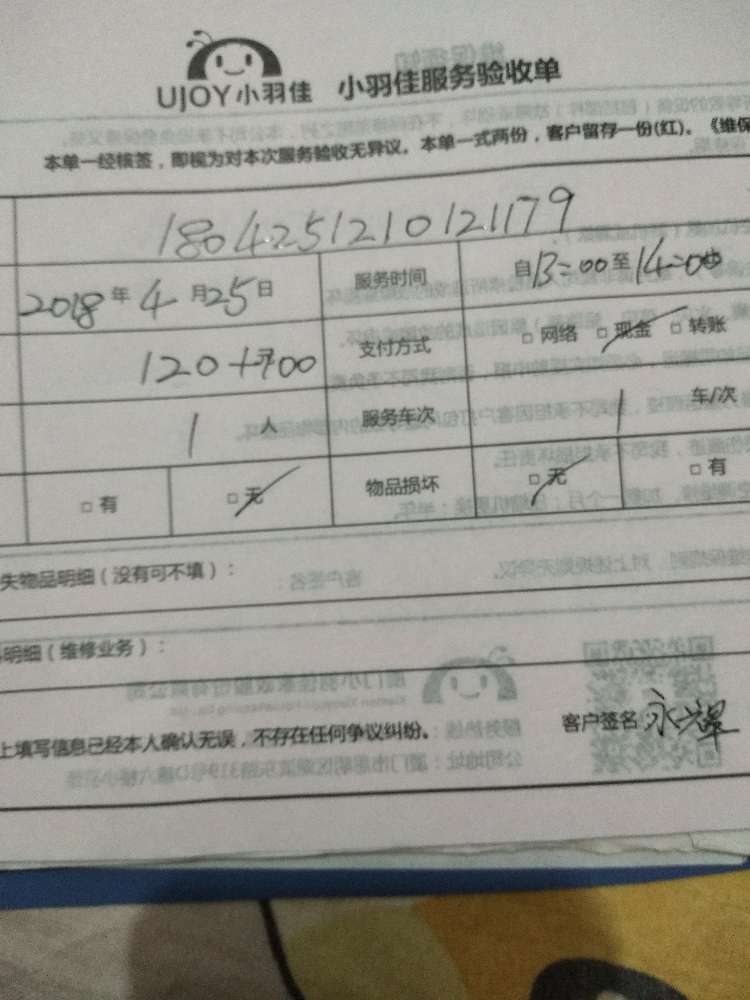 UJOY小羽佳 小羽佳服务验收单
本单一经核签，即视为对本次服务验收无异议。本单一式两份，客户留存一份(红)。《维保
1804251210121179
2018年4月25日 服务时间 自13:00至14:00
120+700 支付方式 □网络 □现金 □转账
1人 服务车次 1车/次
□有 □无 物品损坏 □无 □有
失物品明细（没有可不填）：
明细（维修业务）：
上填写信息已经本人确认无误，不存在任何争议纠纷。 客户签名 永辉